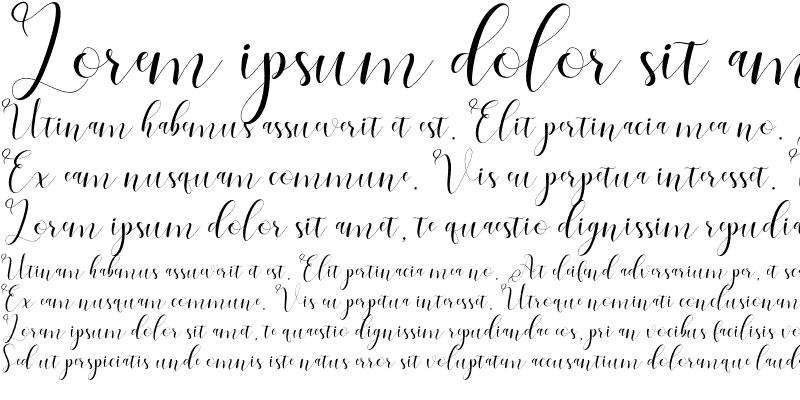 Lorem ipsum dolor sit am
Utinam habemus assueverit et est. Elit pertinacia mea no.
Ex eam nusquam commune. Vis eu perpetua interesset.
Lorem ipsum dolor sit amet, te quaestio dignissim repudia
Utinam habemus assueverit et est. Elit pertinacia mea no. At eleifend adversarium per, et sc
Ex eam nusquam commune. Vis eu perpetua interesset. Utroque nominati conclusionem
Lorem ipsum dolor sit amet, te quaestio dignissim repudiandae eos, pri an vocibus facilisis vo
Sed ut perspiciatis unde omnis iste natus error sit voluptatem accusantium doloremque lauda